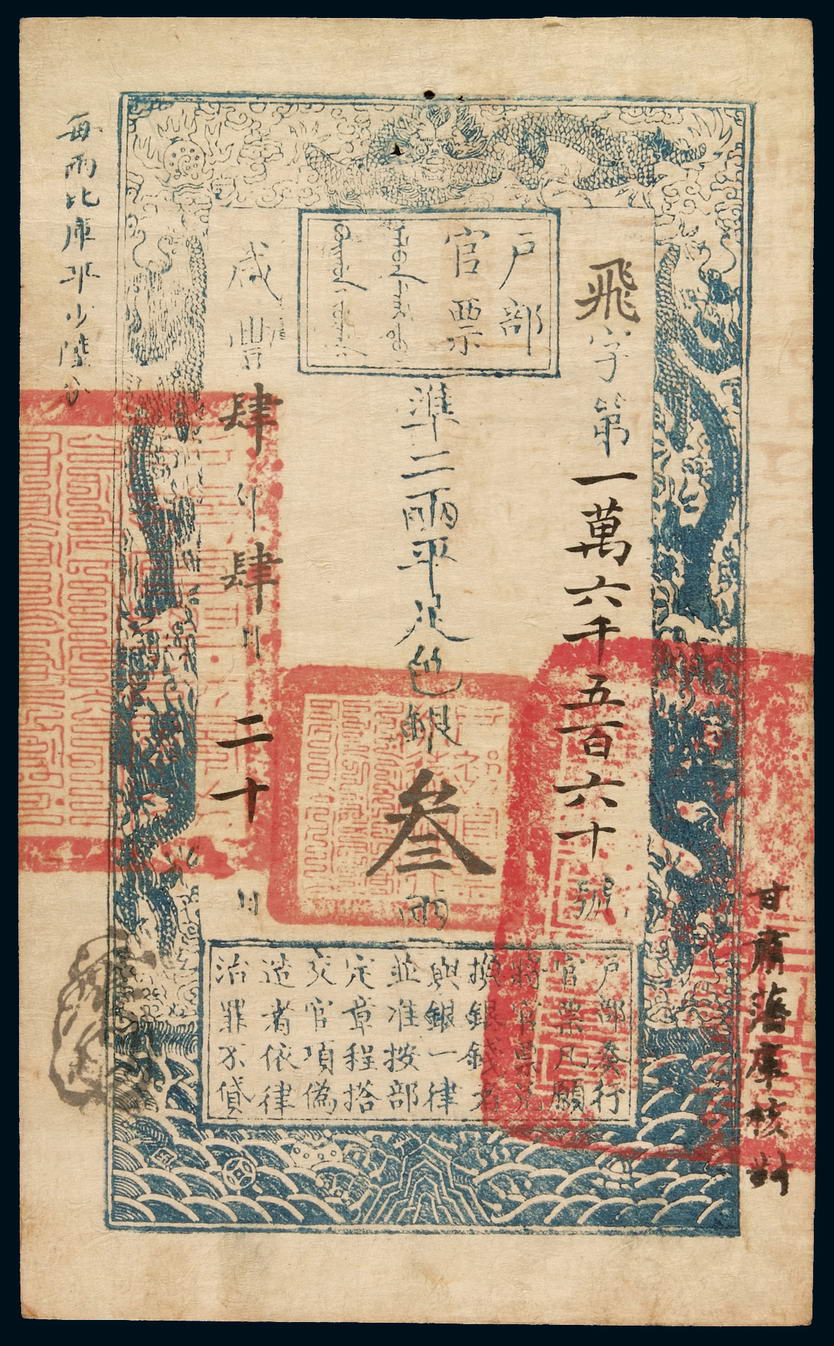 甘肅藩庫核對
戶部
官票
飛字第一萬六千五百六十號
準二兩平足色銀叁兩
咸豐肆年肆月二十日
戶部奏行
官票凡願
將官票兌
換銀錢者
與銀一律
並准按部
定章程搭
交官項偽
造者依律
治罪不貸
每兩比庫平少陸分